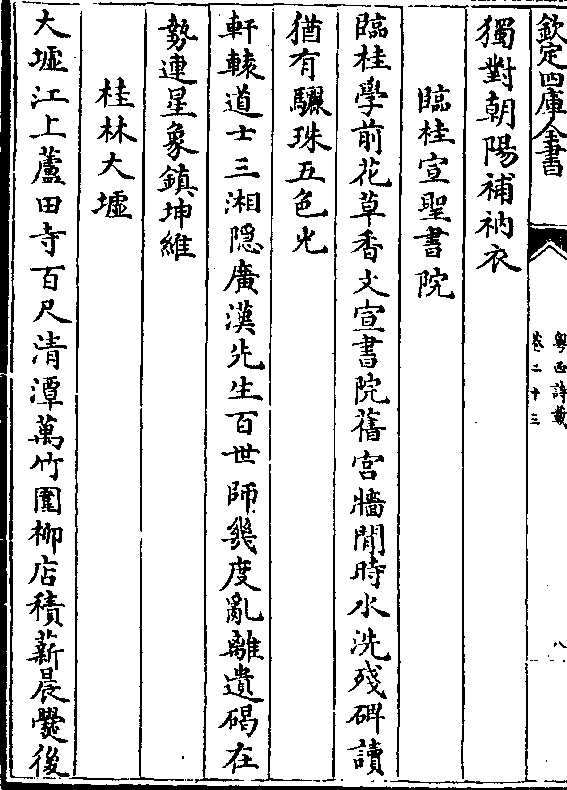 欽定四庫全書
粵西詩載
卷二十三
八
獨對朝陽補衲衣
臨桂宣聖書院
臨桂學前花草香文宣書院舊宫牆閒時水洗殘碑讀
猶有驪珠五色光
軒轅道士三湘隠廣漢先生百世師幾度亂離遺碣在
勢連星象鎮坤維
桂林大墟
大墟江上蘆田寺百尺清潭萬竹圍柳店積薪晨爨後